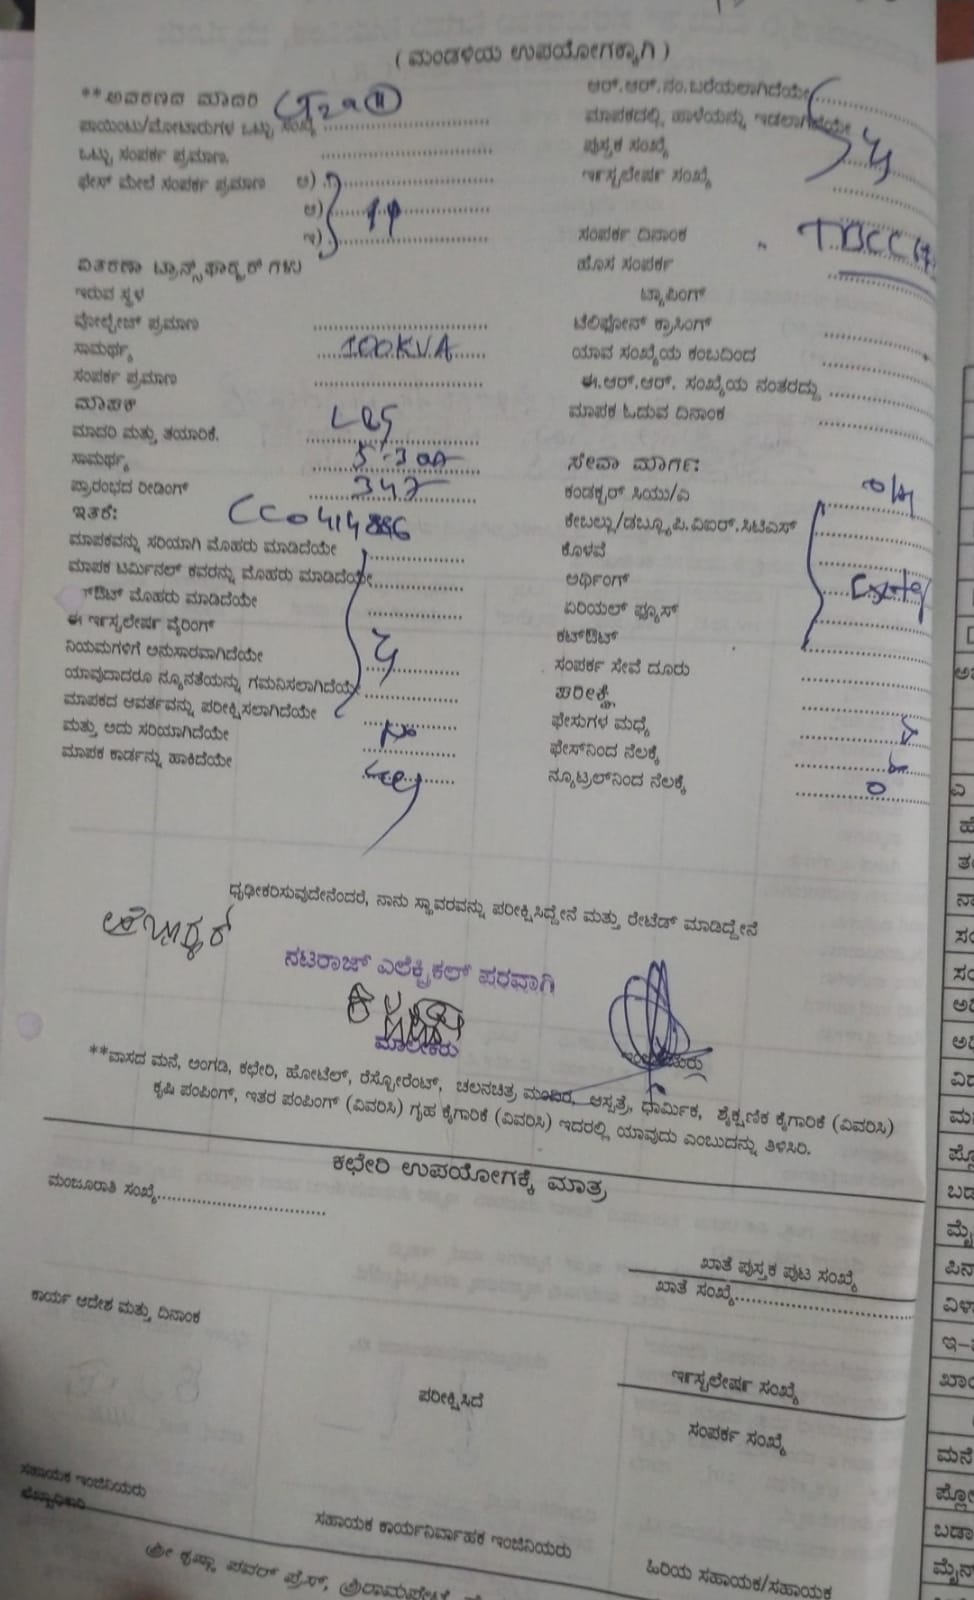 ( ಮಂಡಳಿಯ ಉಪಯೋಗಕ್ಕಾಗಿ )
**ಆವರಣದ ಮಾದರಿ
ಪಾಯಿಂಟು/ಮೋಟಾರುಗಳ ಒಟ್ಟು ಸಂಖ್ಯೆ
ಒಟ್ಟು ಸಂಪರ್ಕ ಪ್ರಮಾಣ.
ಫೇಸ್ ಮೇಲೆ ಸಂಪರ್ಕ ಪ್ರಮಾಣ ಅ)
ಆ)
ಇ)
ವಿತರಣಾ ಟ್ರಾನ್ಸ್‌ಫಾರ್‍ಮರ್ ಗಳು
ಇರುವ ಸ್ಥಳ
ವೋಲ್ಟೇಜ್ ಪ್ರಮಾಣ
ಸಾಮರ್ಥ್ಯ 100KVA
ಸಂಪರ್ಕ ಪ್ರಮಾಣ
ಮಾಪಕ
ಮಾದರಿ ಮತ್ತು ತಯಾರಿಕೆ.
ಸಾಮರ್ಥ್ಯ 5-30A
ಪ್ರಾರಂಭದ ರೀಡಿಂಗ್ 347
ಇತರೆ: CC0414886
ಮಾಪಕವನ್ನು ಸರಿಯಾಗಿ ಮೊಹರು ಮಾಡಿದೆಯೇ
ಮಾಪಕ ಟರ್ಮಿನಲ್ ಕವರನ್ನು ಮೊಹರು ಮಾಡಿದೆಯೇ
ಔಟ್ ಮೊಹರು ಮಾಡಿದೆಯೇ
ಈ ಇನ್ಸ್ಟಲೇಷನ್ ವೈರಿಂಗ್
ನಿಯಮಗಳಿಗೆ ಅನುಸಾರವಾಗಿದೆಯೇ
ಯಾವುದಾದರೂ ನ್ಯೂನತೆಯನ್ನು ಗಮನಿಸಲಾಗಿದೆಯೇ
ಮಾಪಕದ ಆವರ್ತವನ್ನು ಪರೀಕ್ಷಿಸಲಾಗಿದೆಯೇ
ಮತ್ತು ಅದು ಸರಿಯಾಗಿದೆಯೇ
ಮಾಪಕ ಕಾರ್ಡನ್ನು ಹಾಕಿದೆಯೇ
ಆರ್.ಆರ್.ನಂ.ಬರೆಯಲಾಗಿದೆಯೇ
ಮಾಪಕದಲ್ಲಿ ಹಾಳೆಯನ್ನು ಇಡಲಾಗಿದೆಯೇ
ಪುಸ್ತಕ ಸಂಖ್ಯೆ
ಇನ್ಸ್ಟಲೇಷನ್ ಸಂಖ್ಯೆ
ಸಂಪರ್ಕ ದಿನಾಂಕ
ಹೊಸ ಸಂಪರ್ಕ
ಟ್ಯಾಪಿಂಗ್
ಟೆಲಿಫೋನ್ ಕ್ರಾಸಿಂಗ್
ಯಾವ ಸಂಖ್ಯೆಯ ಕಂಬದಿಂದ
ಈ.ಆರ್.ಆರ್. ಸಂಖ್ಯೆಯ ನಂತರದ್ದು
ಮಾಪಕ ಓದುವ ದಿನಾಂಕ
ಸೇವಾ ಮಾರ್ಗ:
ಕಂಡಕ್ಟರ್ ಸಿಯು/ಎ
ಕೇಬಲ್ಲು/ಡಬ್ಲ್ಯೂಪಿ.ವಿಐರ್.ಸಿಟಿಎಸ್
ಕೊಳವೆ
ಅರ್ಥಿಂಗ್
ಏರಿಯಲ್ ಫ್ಯೂಸ್
ಕಟ್‌ಔಟ್
ಸಂಪರ್ಕ ಸೇವೆ ದೂರು
ಪರೀಕ್ಷೆ
ಫೇಸುಗಳ ಮಧ್ಯೆ
ಫೇಸ್‌ನಿಂದ ನೆಲಕ್ಕೆ
ನ್ಯೂಟ್ರಲ್‌ನಿಂದ ನೆಲಕ್ಕೆ 0
ಧೃಢೀಕರಿಸುವುದೇನೆಂದರೆ, ನಾನು ಸ್ಥಾವರವನ್ನು ಪರೀಕ್ಷಿಸಿದ್ದೇನೆ ಮತ್ತು ರೇಟೆಡ್ ಮಾಡಿದ್ದೇನೆ
ನಟರಾಜ್ ಎಲೆಕ್ಟ್ರಿಕಲ್ ಪರವಾಗಿ
ಮಾಲೀಕರು
**ವಾಸದ ಮನೆ, ಅಂಗಡಿ, ಕಛೇರಿ, ಹೋಟೆಲ್, ರೆಸ್ಟೋರೆಂಟ್, ಚಲನಚಿತ್ರ ಮಂದಿರ, ಆಸ್ಪತ್ರೆ, ಧಾರ್ಮಿಕ, ಶೈಕ್ಷಣಿಕ ಕೈಗಾರಿಕೆ (ವಿವರಿಸಿ)
ಕೃಷಿ ಪಂಪಿಂಗ್, ಇತರ ಪಂಪಿಂಗ್ (ವಿವರಿಸಿ) ಗೃಹ ಕೈಗಾರಿಕೆ (ವಿವರಿಸಿ) ಇದರಲ್ಲಿ ಯಾವುದು ಎಂಬುದನ್ನು ತಿಳಿಸಿರಿ.
ಕಛೇರಿ ಉಪಯೋಗಕ್ಕೆ ಮಾತ್ರ
ಮಂಜೂರಾತಿ ಸಂಖ್ಯೆ
ಖಾತೆ ಪುಸ್ತಕ ಪುಟ ಸಂಖ್ಯೆ
ಖಾತೆ ಸಂಖ್ಯೆ
ಕಾರ್ಯ ಆದೇಶ ಮತ್ತು ದಿನಾಂಕ
ಇನ್ಸ್ಟಲೇಷನ್ ಸಂಖ್ಯೆ
ಪರೀಕ್ಷಿಸಿದೆ
ಸಂಪರ್ಕ ಸಂಖ್ಯೆ
ಸಹಾಯಕ ಇಂಜಿನಿಯರು
ಸಹಾಯಕ ಕಾರ್ಯನಿರ್ವಾಹಕ ಇಂಜಿನಿಯರು
ಹಿರಿಯ ಸಹಾಯಕ/ಸಹಾಯಕ
ಶ್ರೀ ಕೃಷ್ಣಾ ಪವರ್ ಪ್ರೆಸ್, ಶ್ರೀರಾಮಪೇಟೆ